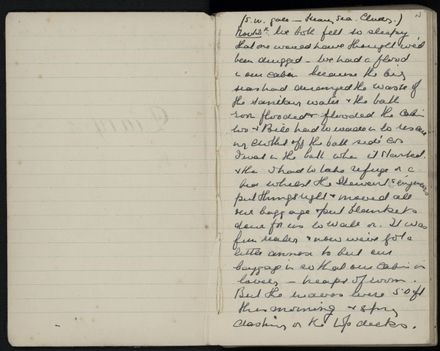 (S.W. gale – Heavy Sea. Cloudy.)
We both felt so sleepy
that one would have thought we'd
been drugged – We had a flood
in our cabin because the big
seas had deranged the waste of
the sanitary water & the bath
room flooded & flooded the Cabin
too & Bill had to wade in to rescue
my clothes off the bath side as
I was in the bath when it started.
& then I had to take refuge in a
whilst the Steward & engineers
put things right & moved all
our baggage & put blankets
down for us to walk on. It was
fun really & now we've got a
little annexe to put our
baggage in so that our Cabin is
lovely – heaps of room.
But the waves were 50 ft
this morning & spray
dashing on the Up decks.